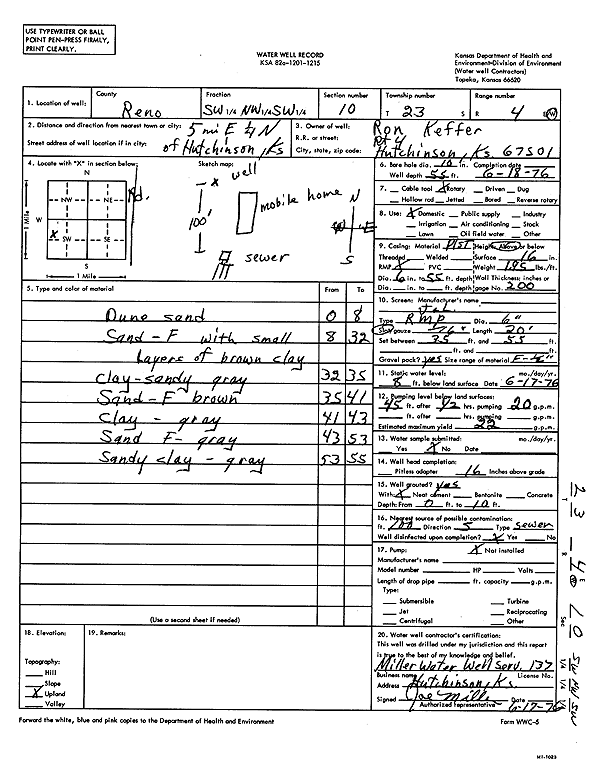 USE TYPEWRITER OR BALL
POINT PEN-PRESS FIRMLY,
PRINT CLEARLY.
WATER WELL RECORD
KSA 82a-1201-1215
Kansas Department of Health and
Environment-Division of Environment
(Water well Contractors)
Topeka, Kansas 66620
1. Location of well:
County
Reno
Fraction
SW 1/4 NW 1/4 SW 1/4
Section number
10
Township number
T 23 S
Range number
R 4 E/W
2. Distance and direction from nearest town or city: 5 mi E 4 N
Street address of well location if in city: of Hutchinson, Ks
3. Owner of well: Ron Keffer
R.R. or street: Rt 4
City, state, zip code: Hutchinson, Ks 67501
4. Locate with "X" in section below:
N
NW NE
W
SW SE
X
S
1 Mile
1 Mile
Rd.
Sketch map:
X well
100'
mobile home
sewer
N
W E
S
6. Bore hole dia. 10 in. Completion date
Well depth 55 ft. 6-18-76
7. Cable tool X Rotary Driven Dug
Hollow rod Jetted Bored Reverse rotary
8. Use: X Domestic Public supply Industry
Irrigation Air conditioning Stock
Lawn Oil field water Other
9. Casing: Material Plst Height: Above or below
Threaded Welded Surface 16 in.
RMP X PVC Weight 195 lbs./ft.
Dia. 6 in. to 55 ft. depth Wall Thickness: inches or
Dia. in. to ft. depth gage No. 200
5. Type and color of material
From To
Dune sand 0 8
Sand - F with small 8 32
Layers of brown clay
Clay-sandy gray 32 35
Sand - F brown 35 41
Clay - gray 41 43
Sand F- gray 43 53
Sandy clay - gray 53 55
(Use a second sheet if needed)
10. Screen: Manufacturer's name
Type RMP Dia. 6"
Slot/gauze 1/16" Length 20'
Set between 35 ft. and 55 ft.
ft. and ft.
Gravel pack? yes Size range of material
11. Static water level: mo./day/yr.
8 ft. below land surface Date 6-17-76
12. Pumping level below land surfaces:
45 ft. after 1/2 hrs. pumping 20 g.p.m.
ft. after hrs. pumping g.p.m.
Estimated maximum yield 22 g.p.m.
13. Water sample submitted: mo./day/yr.
Yes X No Date
14. Well head completion:
Pitless adapter 16 Inches above grade
15. Well grouted? yes
With: X Neat cement Bentonite Concrete
Depth: From 0 ft. to 10 ft.
16. Nearest source of possible contamination:
ft. 100 Direction S Type sewer
Well disinfected upon completion? X Yes No
17. Pump: X Not installed
Manufacturer's name
Model number HP Volts
Length of drop pipe ft. capacity g.p.m.
Type:
Submersible Turbine
Jet Reciprocating
Centrifugal Other
18. Elevation:
Topography:
Hill
Slope
X Upland
Valley
19. Remarks:
20. Water well contractor's certification:
This well was drilled under my jurisdiction and this report
is true to the best of my knowledge and belief.
Miller Water Well Serv. 137
Business name License No.
Address Hutchinson, Ks.
Signed Joe Miller Date 6-17-76
Authorized representative
Forward the white, blue and pink copies to the Department of Health and Environment
Form WWC-5
T 23 R 4 E W Sec 10 SW NW SW 1/4 1/4 1/4